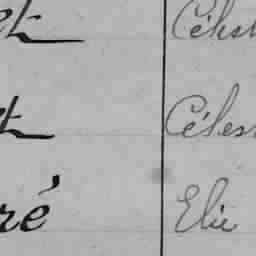 et Célest
et Célest
ré Elie